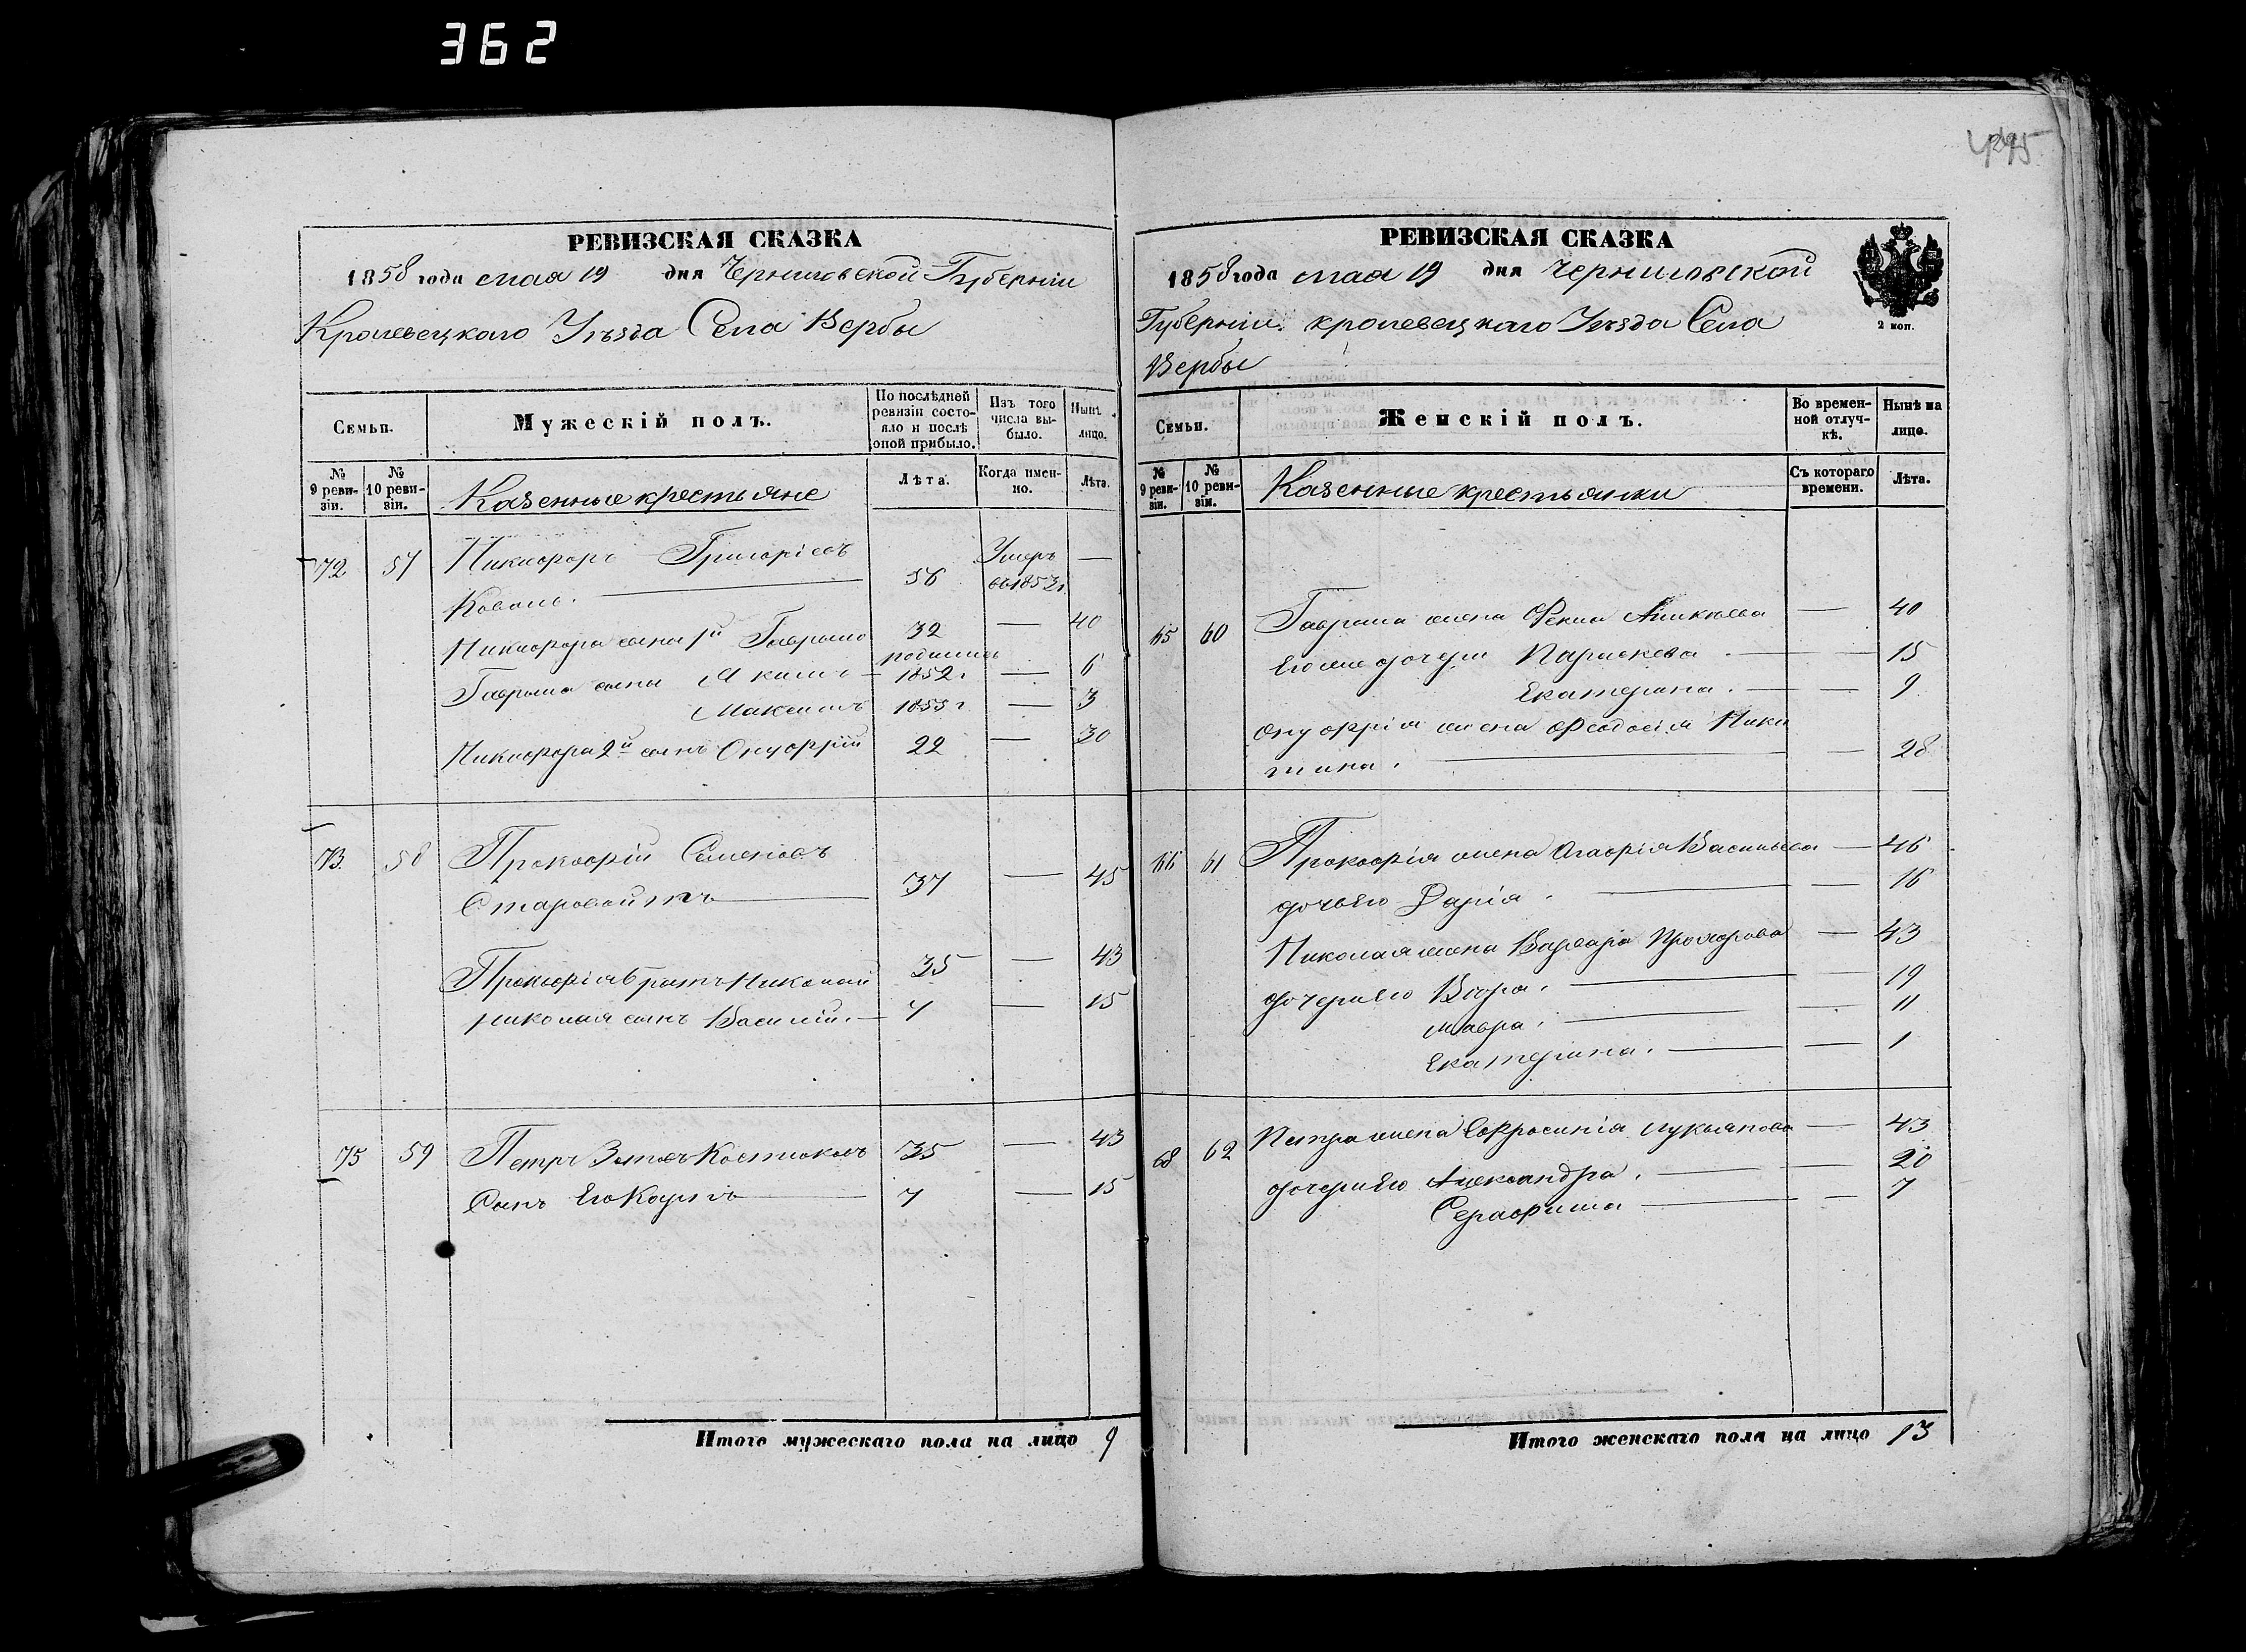 362
495
РЕВИЗСКАЯ СКАЗКА
1858 года мая 19 дня Черниговской Губерніи
Кролевецкаго Уѣзда Села Вербы
Семьи.
Мужескій полъ.
По послѣдней ревизіи состояло и послѣ оной прибыло.
Изъ того числа выбыло.
Нынѣ лицо.
№ 9 ревизіи.
№ 10 ревизіи.
Казенные крестьяне
Лѣта.
Когда именно.
Лѣта.
72 57 Никифоръ Григоріевъ Умеръ —
Коваль. 56 въ 1853 г.
Никифора сынъ 1й Гаврыло 32 — 40
родился
Гаврыла сыны Акимъ 1852 г — 6
Максимъ 1855 г — 3
Никифора 2й сынъ Онуфрій 22 — 30
73. 58 Прокофій Семеновъ
Старовойтъ 37 — 45
Прокофія братъ Николай 35 — 43
Николая сынъ Василій. 7 — 15
75 59 Петръ Костюковъ 35 — 43
Сынъ Его Карпъ 7 — 15
Итого мужескаго пола на лицо 9
РЕВИЗСКАЯ СКАЗКА
1858 года мая 19 дня Черниговской
Губерніи кролевецкаго Уѣзда Села
Вербы
2 коп.
Семьи.
Женскій полъ.
Во временной отлучкѣ.
Нынѣ на лице.
№ 9 ревизіи.
№ 10 ревизіи.
Казенные крестьянки
Съ котораго времени.
Лѣта.
65 60 Гаврыла жена Фекла — 40
Его же дочери Параскева — 15
Екатерина. — 9
Онуфрія жена Феодосія Ники
тина. — 28
66 61 Прокофія жена Агафія Васильева — 46
дочь Его Дарія. — 16
Николая жена Варвара Прохорова — 43
дочери Его Вѣра. — 19
Мавра. — 11
Екатерина. — 1
68 62 Петра жена Евфросинія Лукьянова — 43
дочери Его Александра. — 20
Серафима — 7
Итого женскаго пола на лицо 13